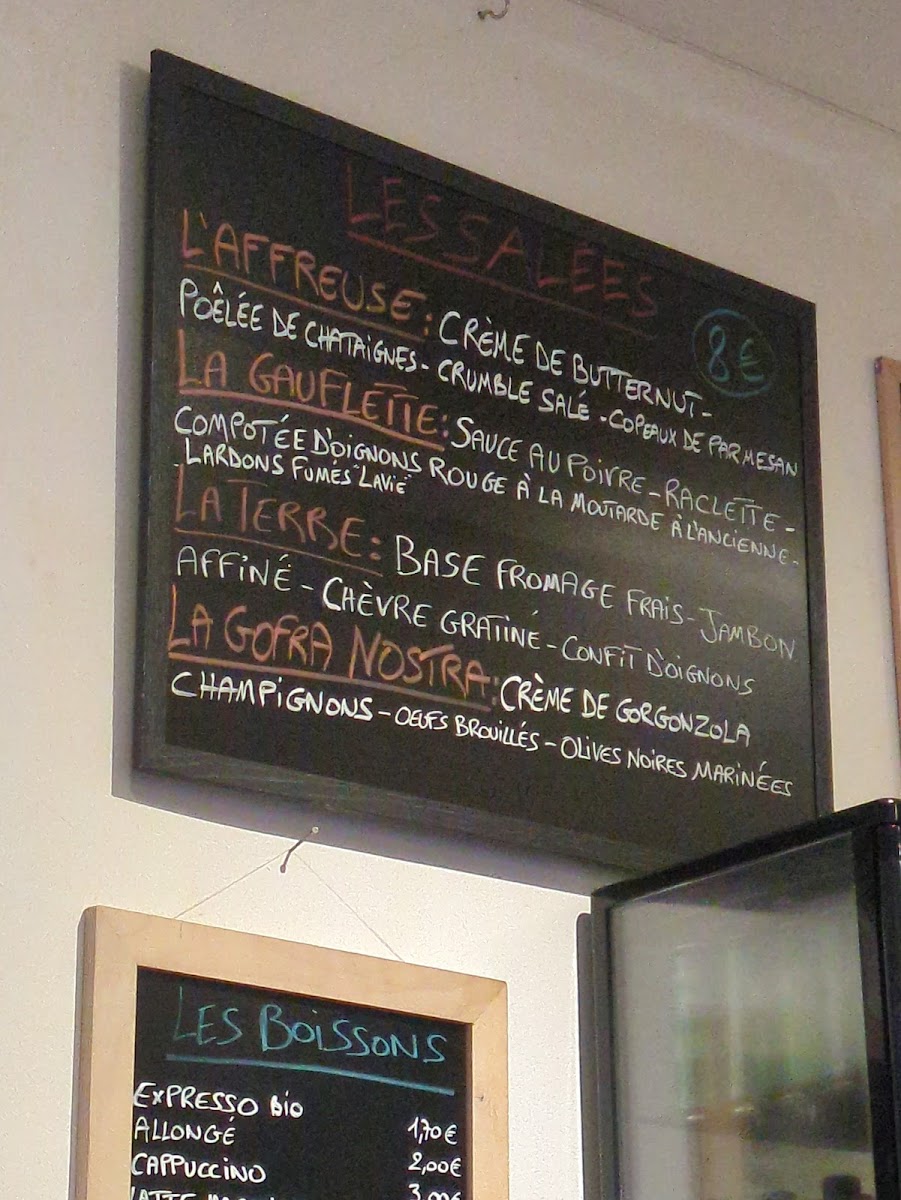 LES SALÉES
8€
L'AFFREUSE: CRÈME DE BUTTERNUT-
POÊLÉE DE CHATAIGNES - CRUMBLE SALÉ - COPEAUX DE PARMESAN
LA GAUFLETTE: SAUCE AU POIVRE - RACLETTE -
COMPOTÉE D'OIGNONS ROUGE À LA MOUTARDE À L'ANCIENNE -
LARDONS FUMÉS "LAVIE"
LA TERRE: BASE FROMAGE FRAIS - JAMBON
AFFINÉ - CHÈVRE GRATINÉ - CONFIT D'OIGNONS
LA GOFRA NOSTRA: CRÈME DE GORGONZOLA
CHAMPIGNONS - OEUFS BROUILLÉS - OLIVES NOIRES MARINÉES
LES BOISSONS
EXPRESSO BIO
ALLONGÉ 1,70€
CAPPUCCINO 2,00€
LATTE 3,00€